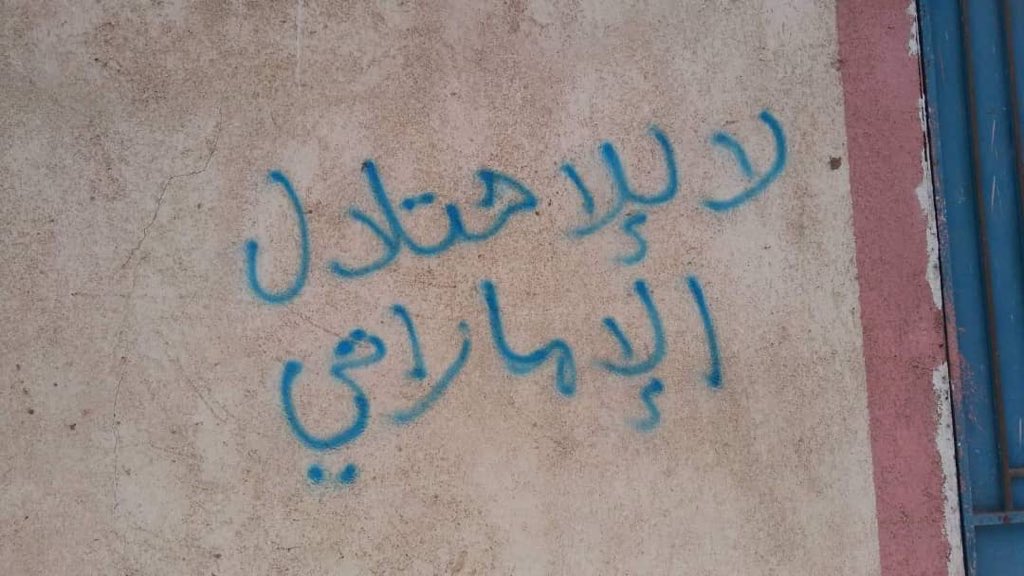 لا للإحتلال
الإماراتي